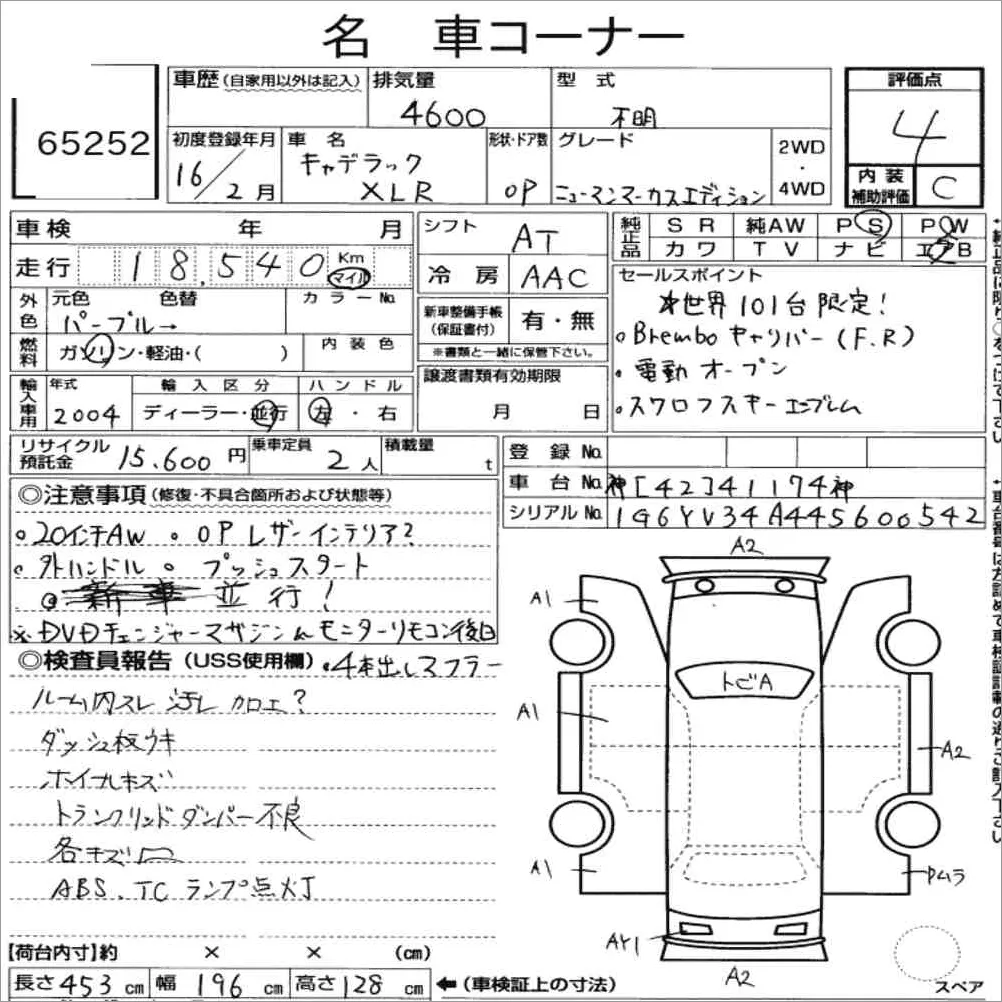 名 車コーナー
65252
車歴 (自家用以外は記入)
排気量
4600
型式
不明
評価点
4
初度登録年月
16/2月
車名
キャデラック
XLR
形状・ドア数
OP
グレード
ニューマンマーカスエディション
2WD
・
4WD
内装
補助評価
C
車検 年 月
走行 18,540 Km
マイル
シフト
AT
冷房 AAC
純正品
SR 純AW PS PW
カワ TV ナビ エアB
外色
元色 色替
パープル→
カラーNo.
セールスポイント
※世界101台限定!
・Bremboキャリパー(F.R)
・電動オープン
・スワロフスキーエンブレム
新車整備手帳
(保証書付)
有・無
※書類と一緒に保管下さい。
燃料
ガソリン・軽油・( )
内装色
譲渡書類有効期限
月 日
輸入車用
年式
2004
輸入区分
ディーラー・並行
ハンドル
左・右
リサイクル
預託金
15.600円
乗車定員
2人
積載量
t
登録No.
車台No. 神[42]41174神
シリアルNo. 1G6YV34A445600542
◎注意事項(修復・不具合箇所および状態等)
・20インチAW ・OPレザーインテリア?
・外ハンドル ・プッシュスタート
並行!
※DVDチェンジャーマガジン モニターリモコン後日
◎検査員報告(USS使用欄)
・4本出しマフラー
ルーム内スレ 汚レ カロエ?
ダッシュ板ウキ
ホイールキズ
トランクリッドダンパー不良
各キズ凹
ABS、TCランプ点灯
A2
A1
トビA
A1
A2
A1
AY1
A2
スペア
【荷台内寸】約 × × (cm)
長さ453cm 幅196cm 高さ128cm
←(車検証上の寸法)